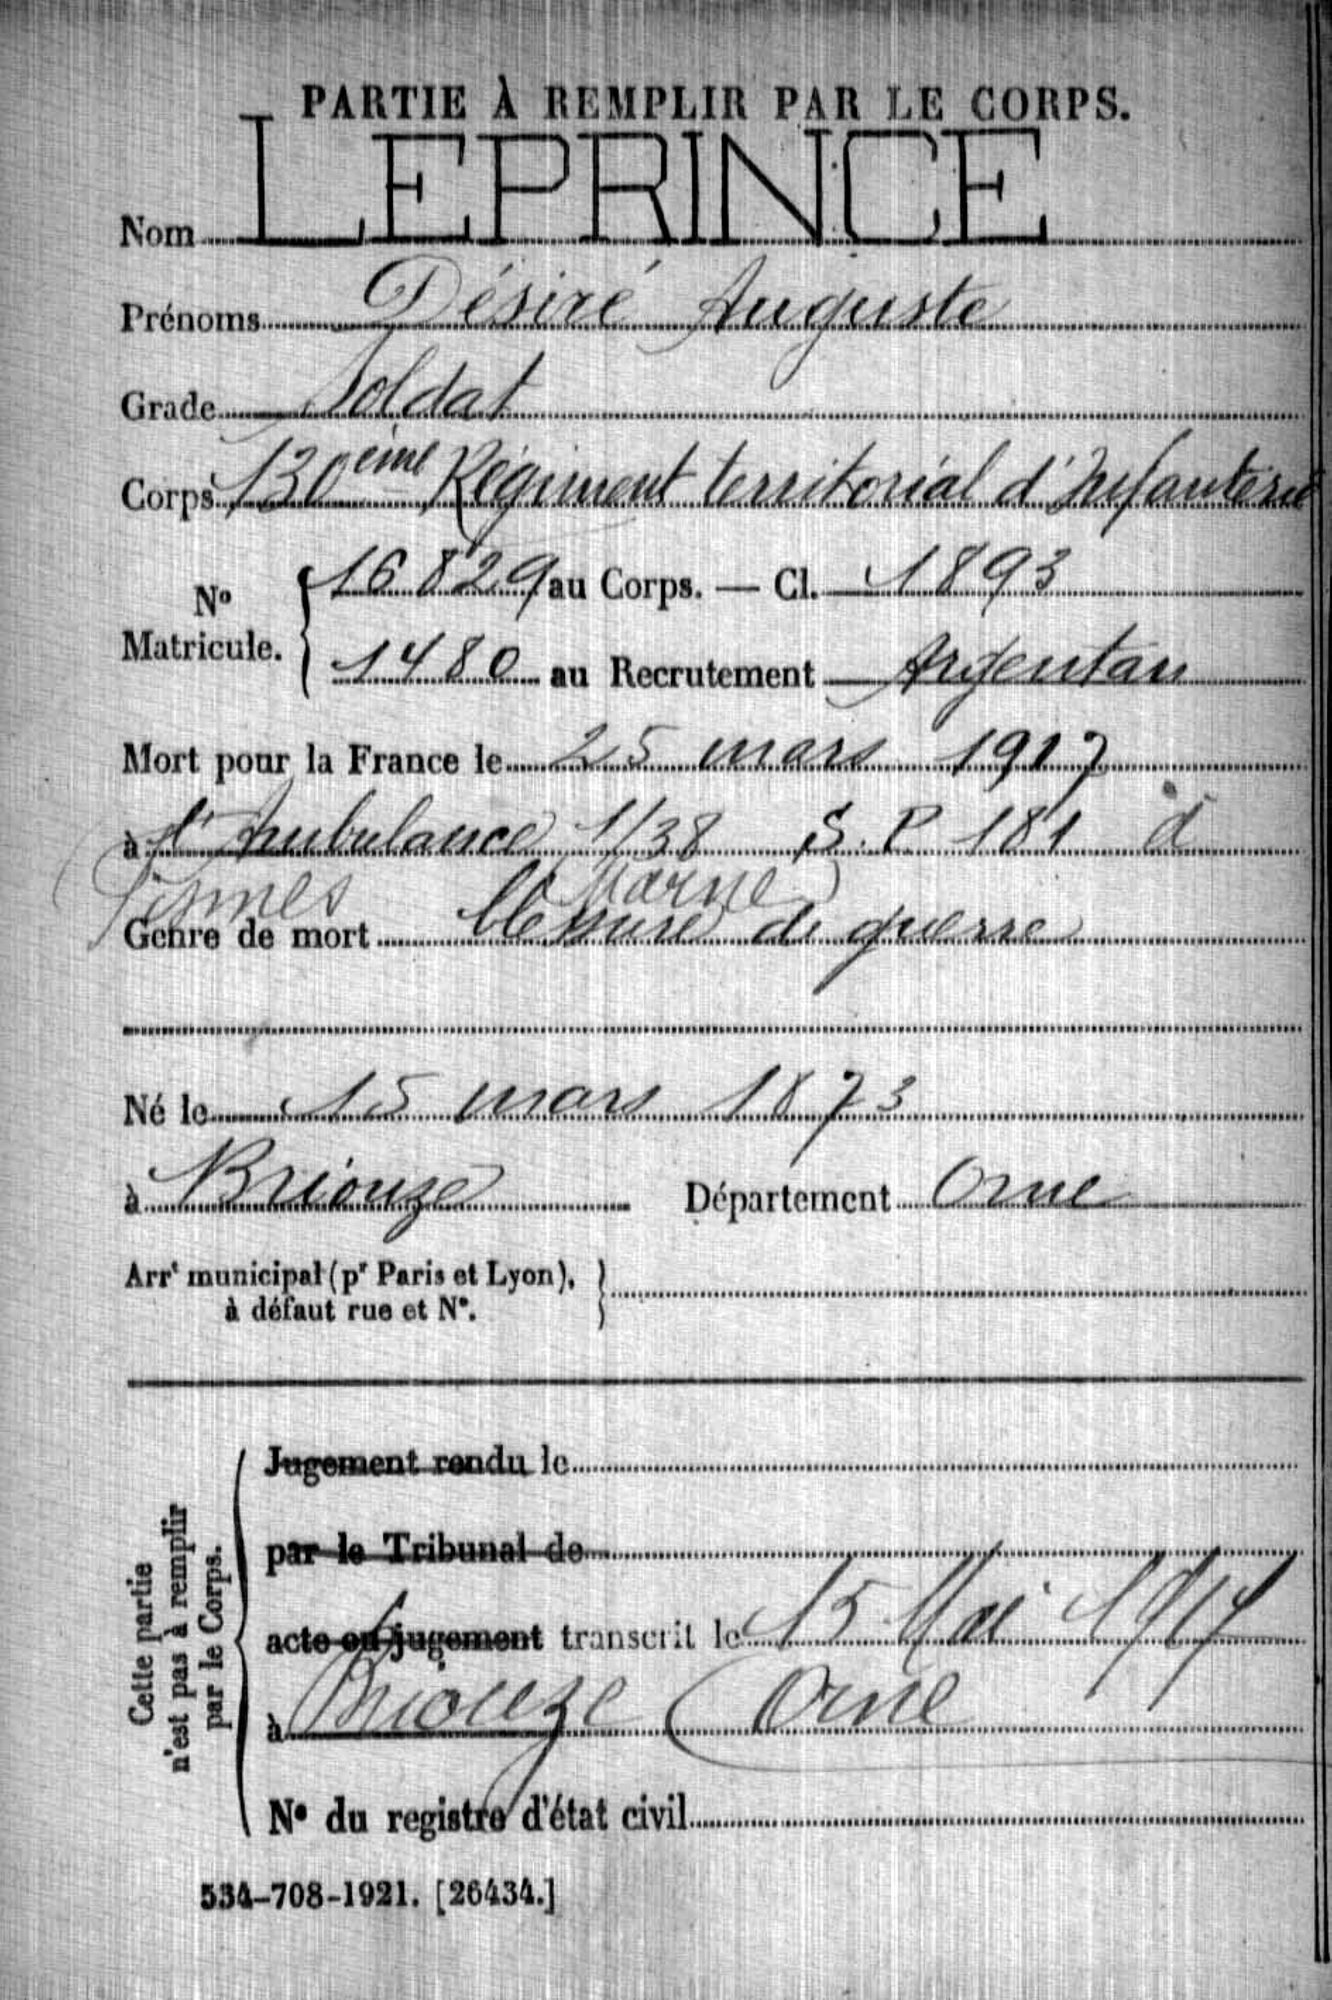 PARTIE À REMPLIR PAR LE CORPS.
Nom LEPRINCE
Prénoms Désiré Auguste
Grade Soldat
Corps 130ème Régiment territorial d'Infanterie
No Matricule. { 16829 au Corps. — Cl. 1893
1480 au Recrutement Argentan
Mort pour la France le 25 mars 1917
à l'Ambulance 1/38 S. P. 181 à
Fismes (Marne)
Genre de mort blessure de guerre
Né le 15 mars 1873
à Briouze Département Orne
Arrt municipal (pr Paris et Lyon), }
à défaut rue et N°.
Cette partie
n'est pas à remplir
par le Corps.
Jugement rendu le
par le Tribunal de
acte ou jugement transcrit le 15 Mai 1917
à Briouze (Orne
N° du registre d'état civil
534-708-1921. [26434.]